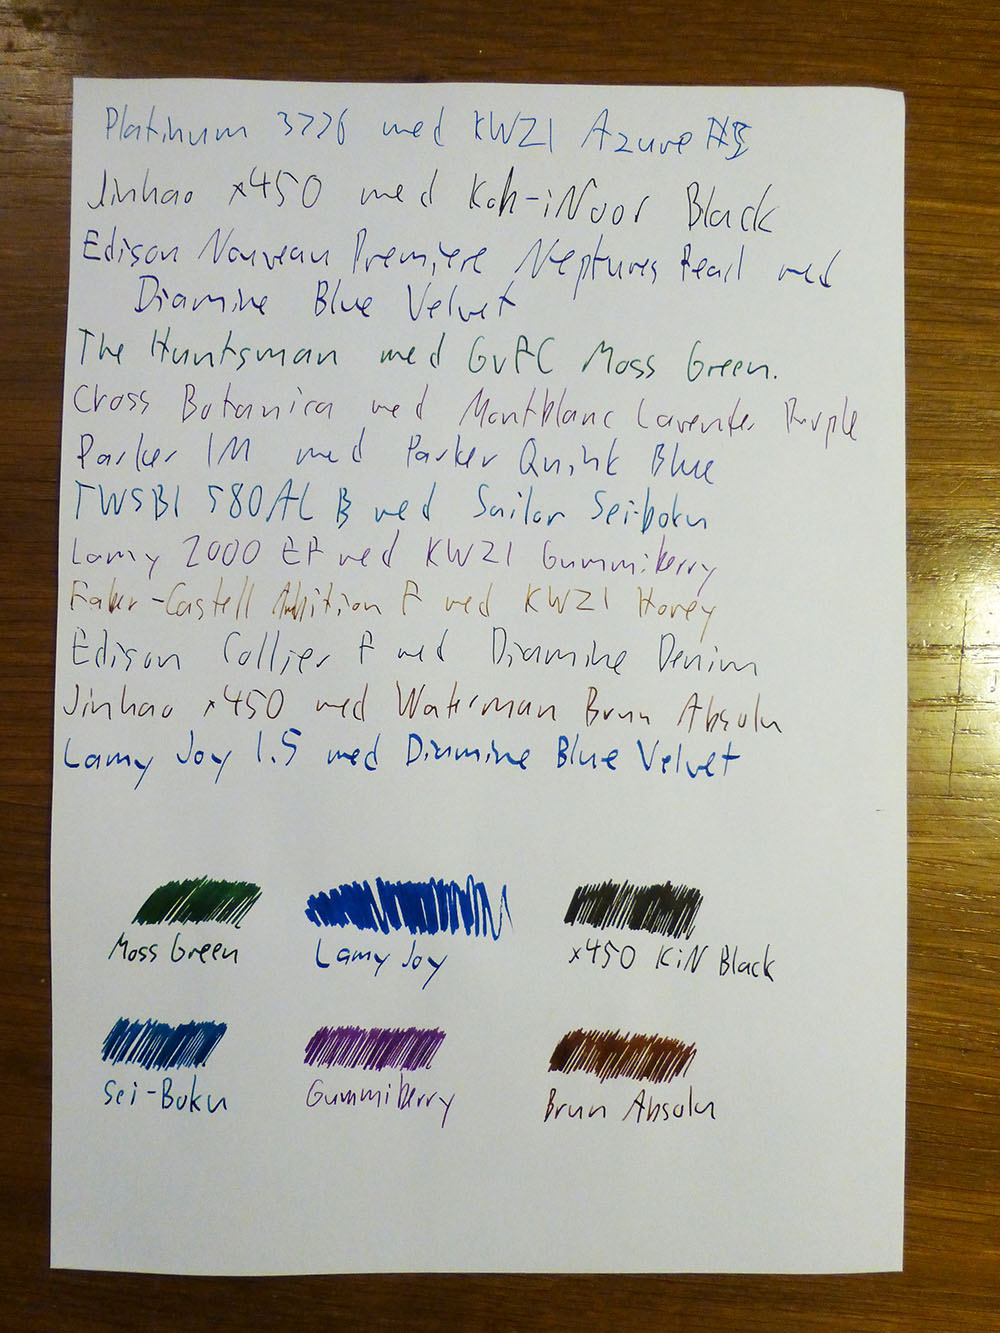 Platinum 3776 med KWZI Azure #3
Jinhao x450 med Koh-iNoor Black
Edison Nouveau Premiere Neptunes Pearl med
Diamine Blue Velvet
The Huntsman med GvFC Moss Green.
Cross Botanica med Montblanc Lavender Purple
Parker IM med Parker Quink Blue
TWSBI 580AL B med Sailor Sei-boku
Lamy 2000 EF med KWZI Gummiberry
Faber-Castell Ambition F med KWZI Honey
Edison Collier F med Diamine Denim
Jinhao x450 med Waterman Brun Absolu
Lamy Joy 1.5 med Diamine Blue Velvet
Moss Green
Lamy Joy
x450 KiN Black
Sei-Boku
Gummiberry
Brun Absolu